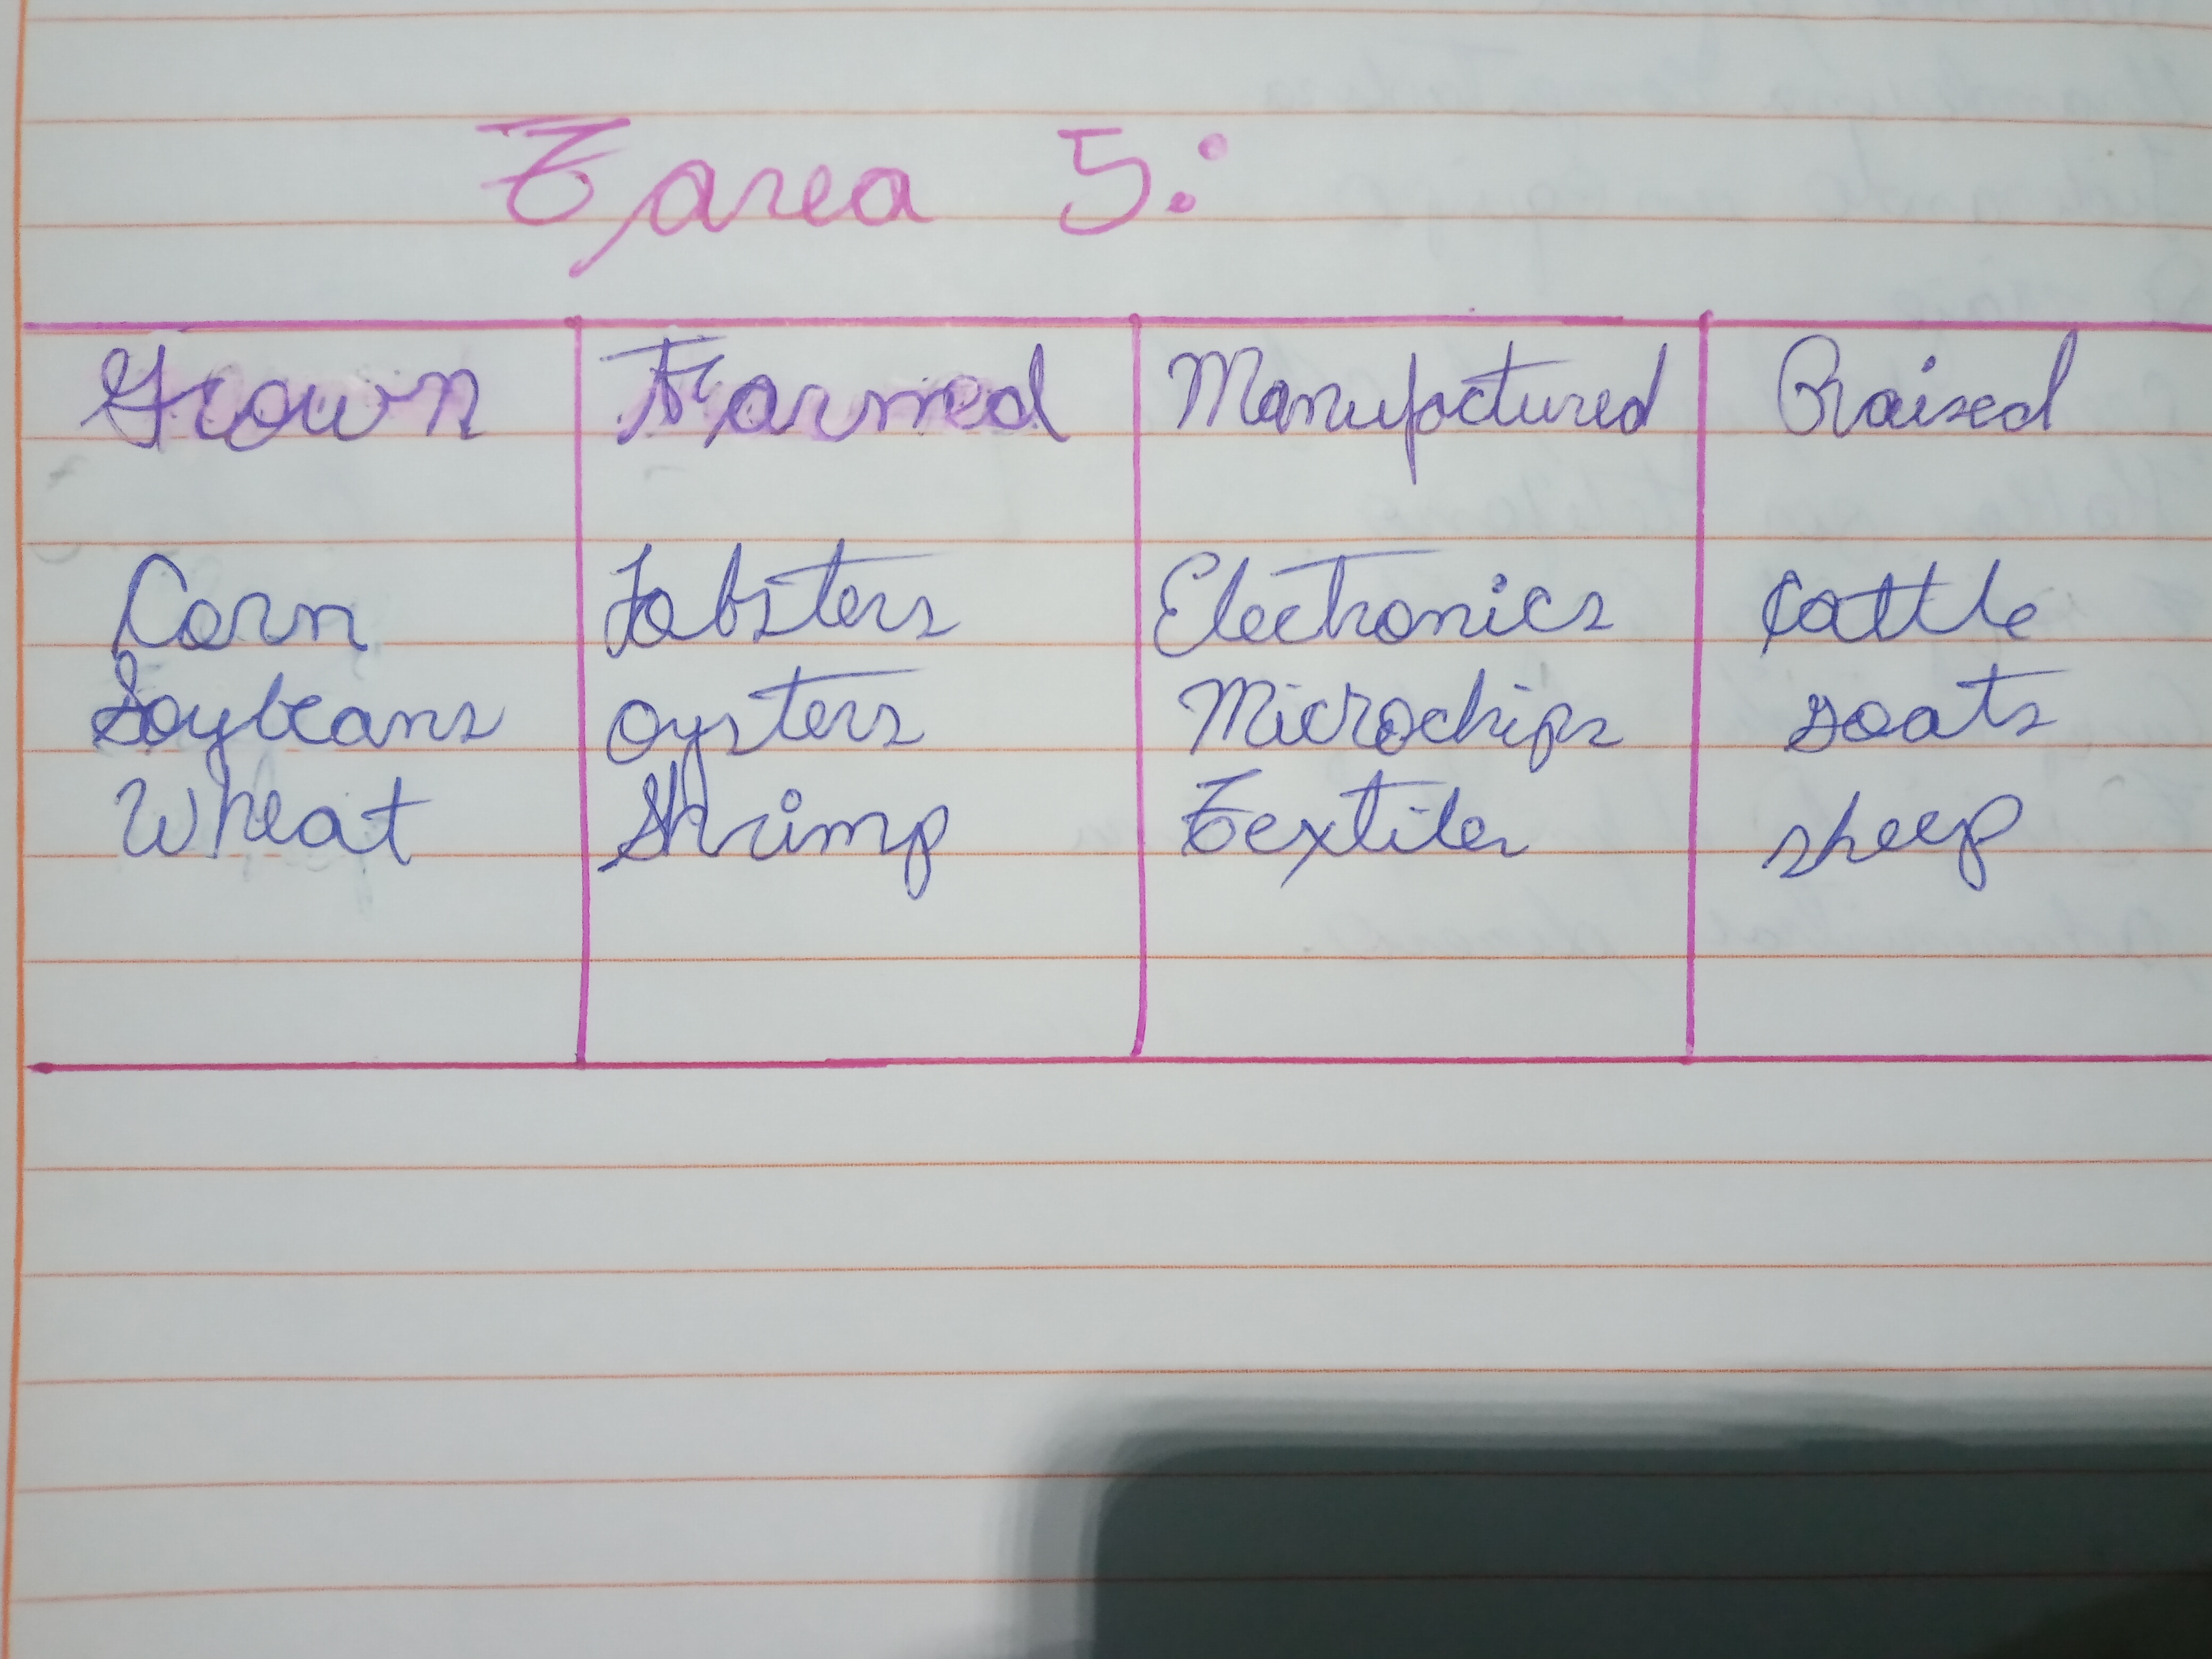 Tarea 5:
Grown Farmed Manufactured Raised
Corn Lobsters Electronics cattle
Soybeans oysters Microchips goats
Wheat Shrimp Textiles sheep